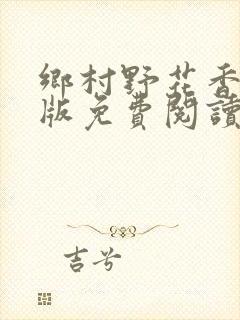 鄉村野花香
版免費閱讀
吉兮